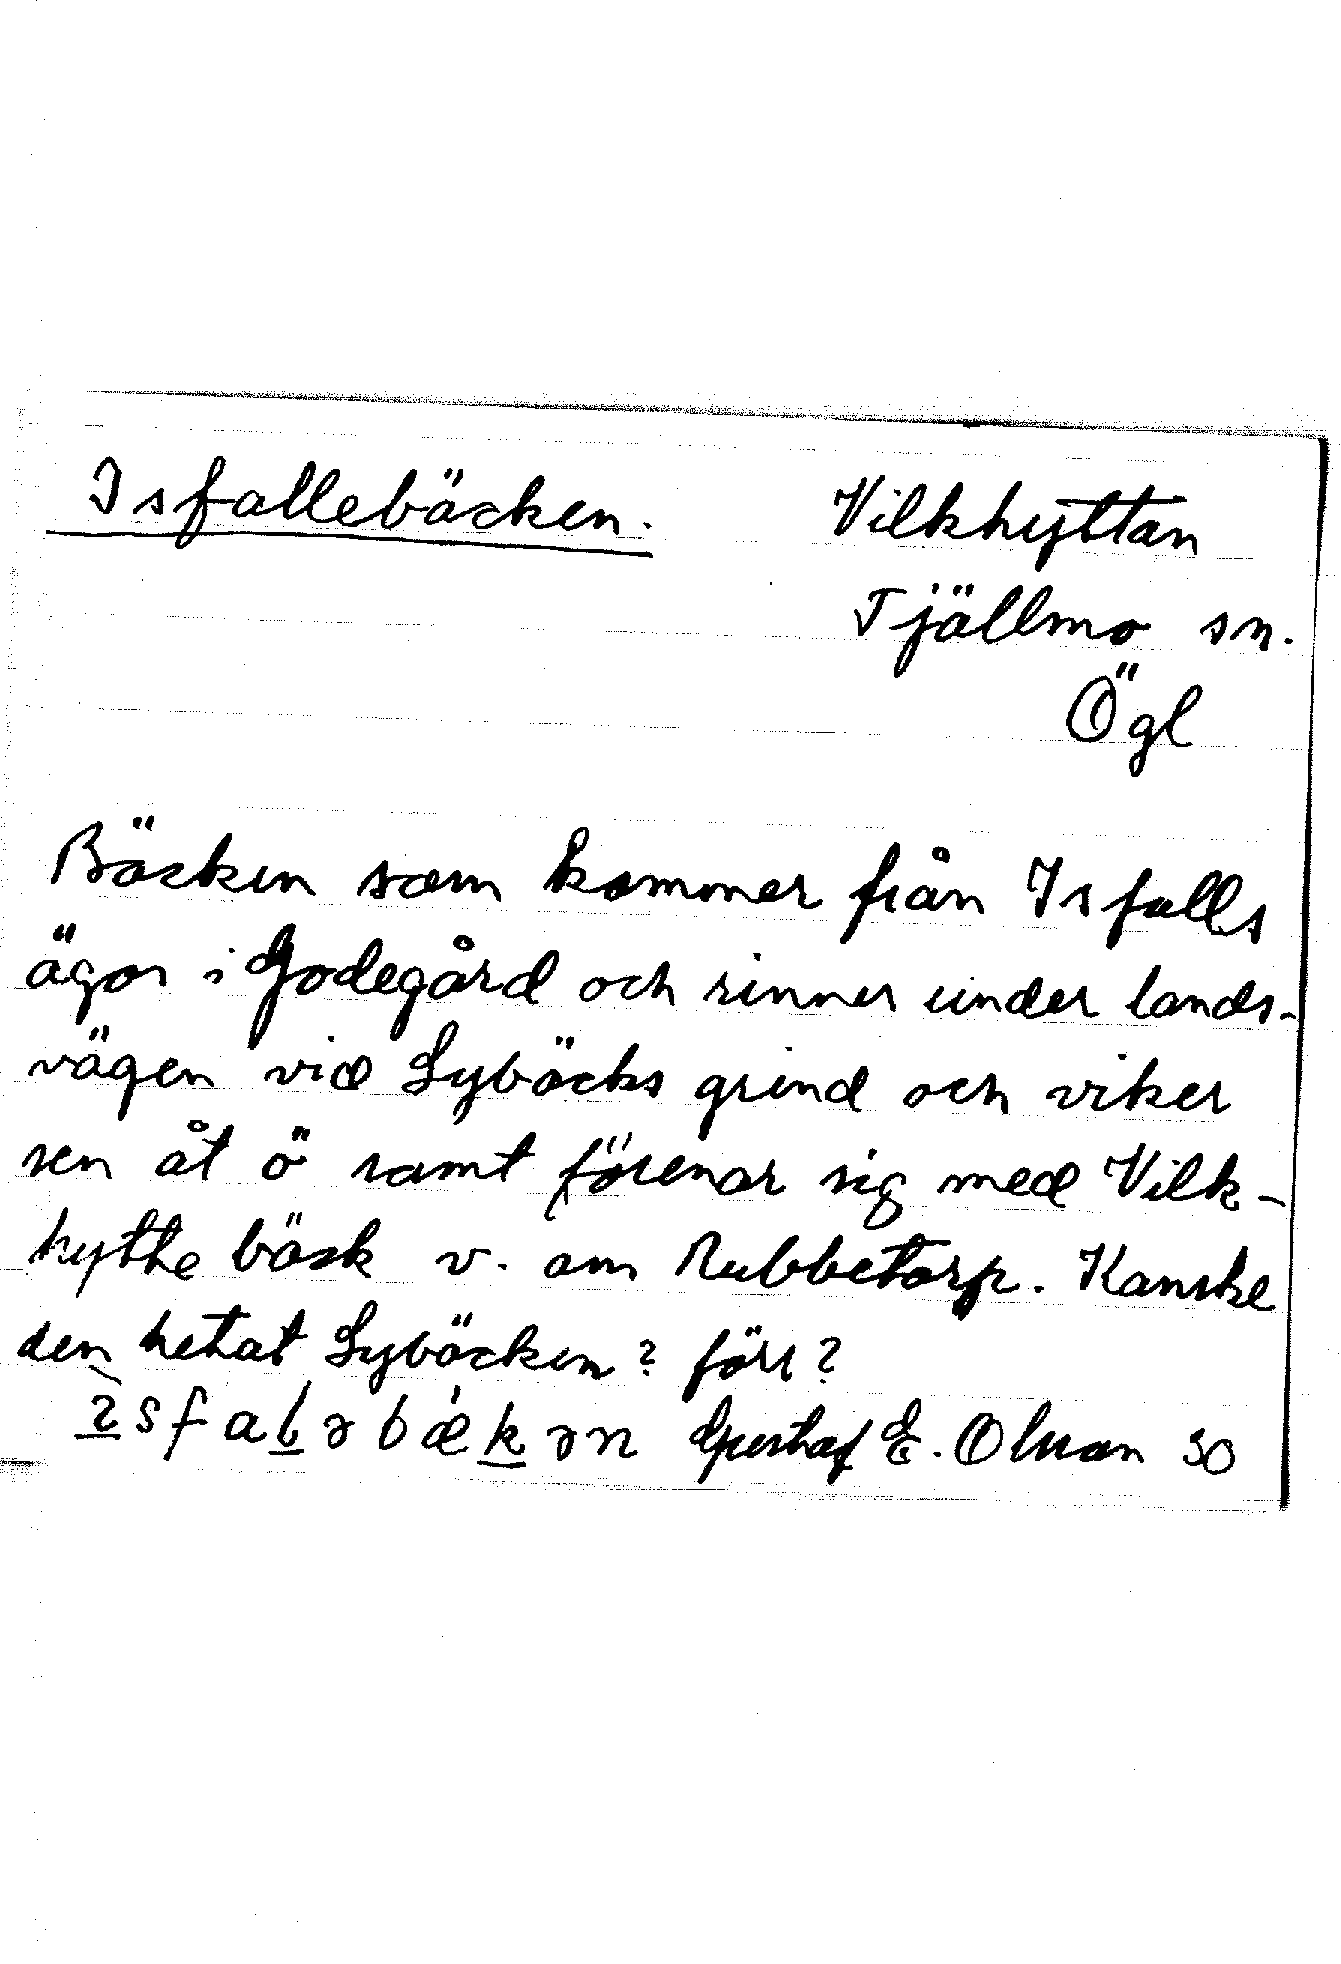 Isfallebäcken.
Vilkhyttan
Tjällmo sn.
Ögl
Bäcken som kommer från Isfalls
ägor i Godegård och rinner under lands-
vägen vid Lybäcks grind och viker
sen åt ö samt förenar sig med Vilk-
hytte bäck v. om Rubbetorp. Kanske
den hetat Lybäcken? förr?
ısfalərbækən Gustaf E. Olsson 30